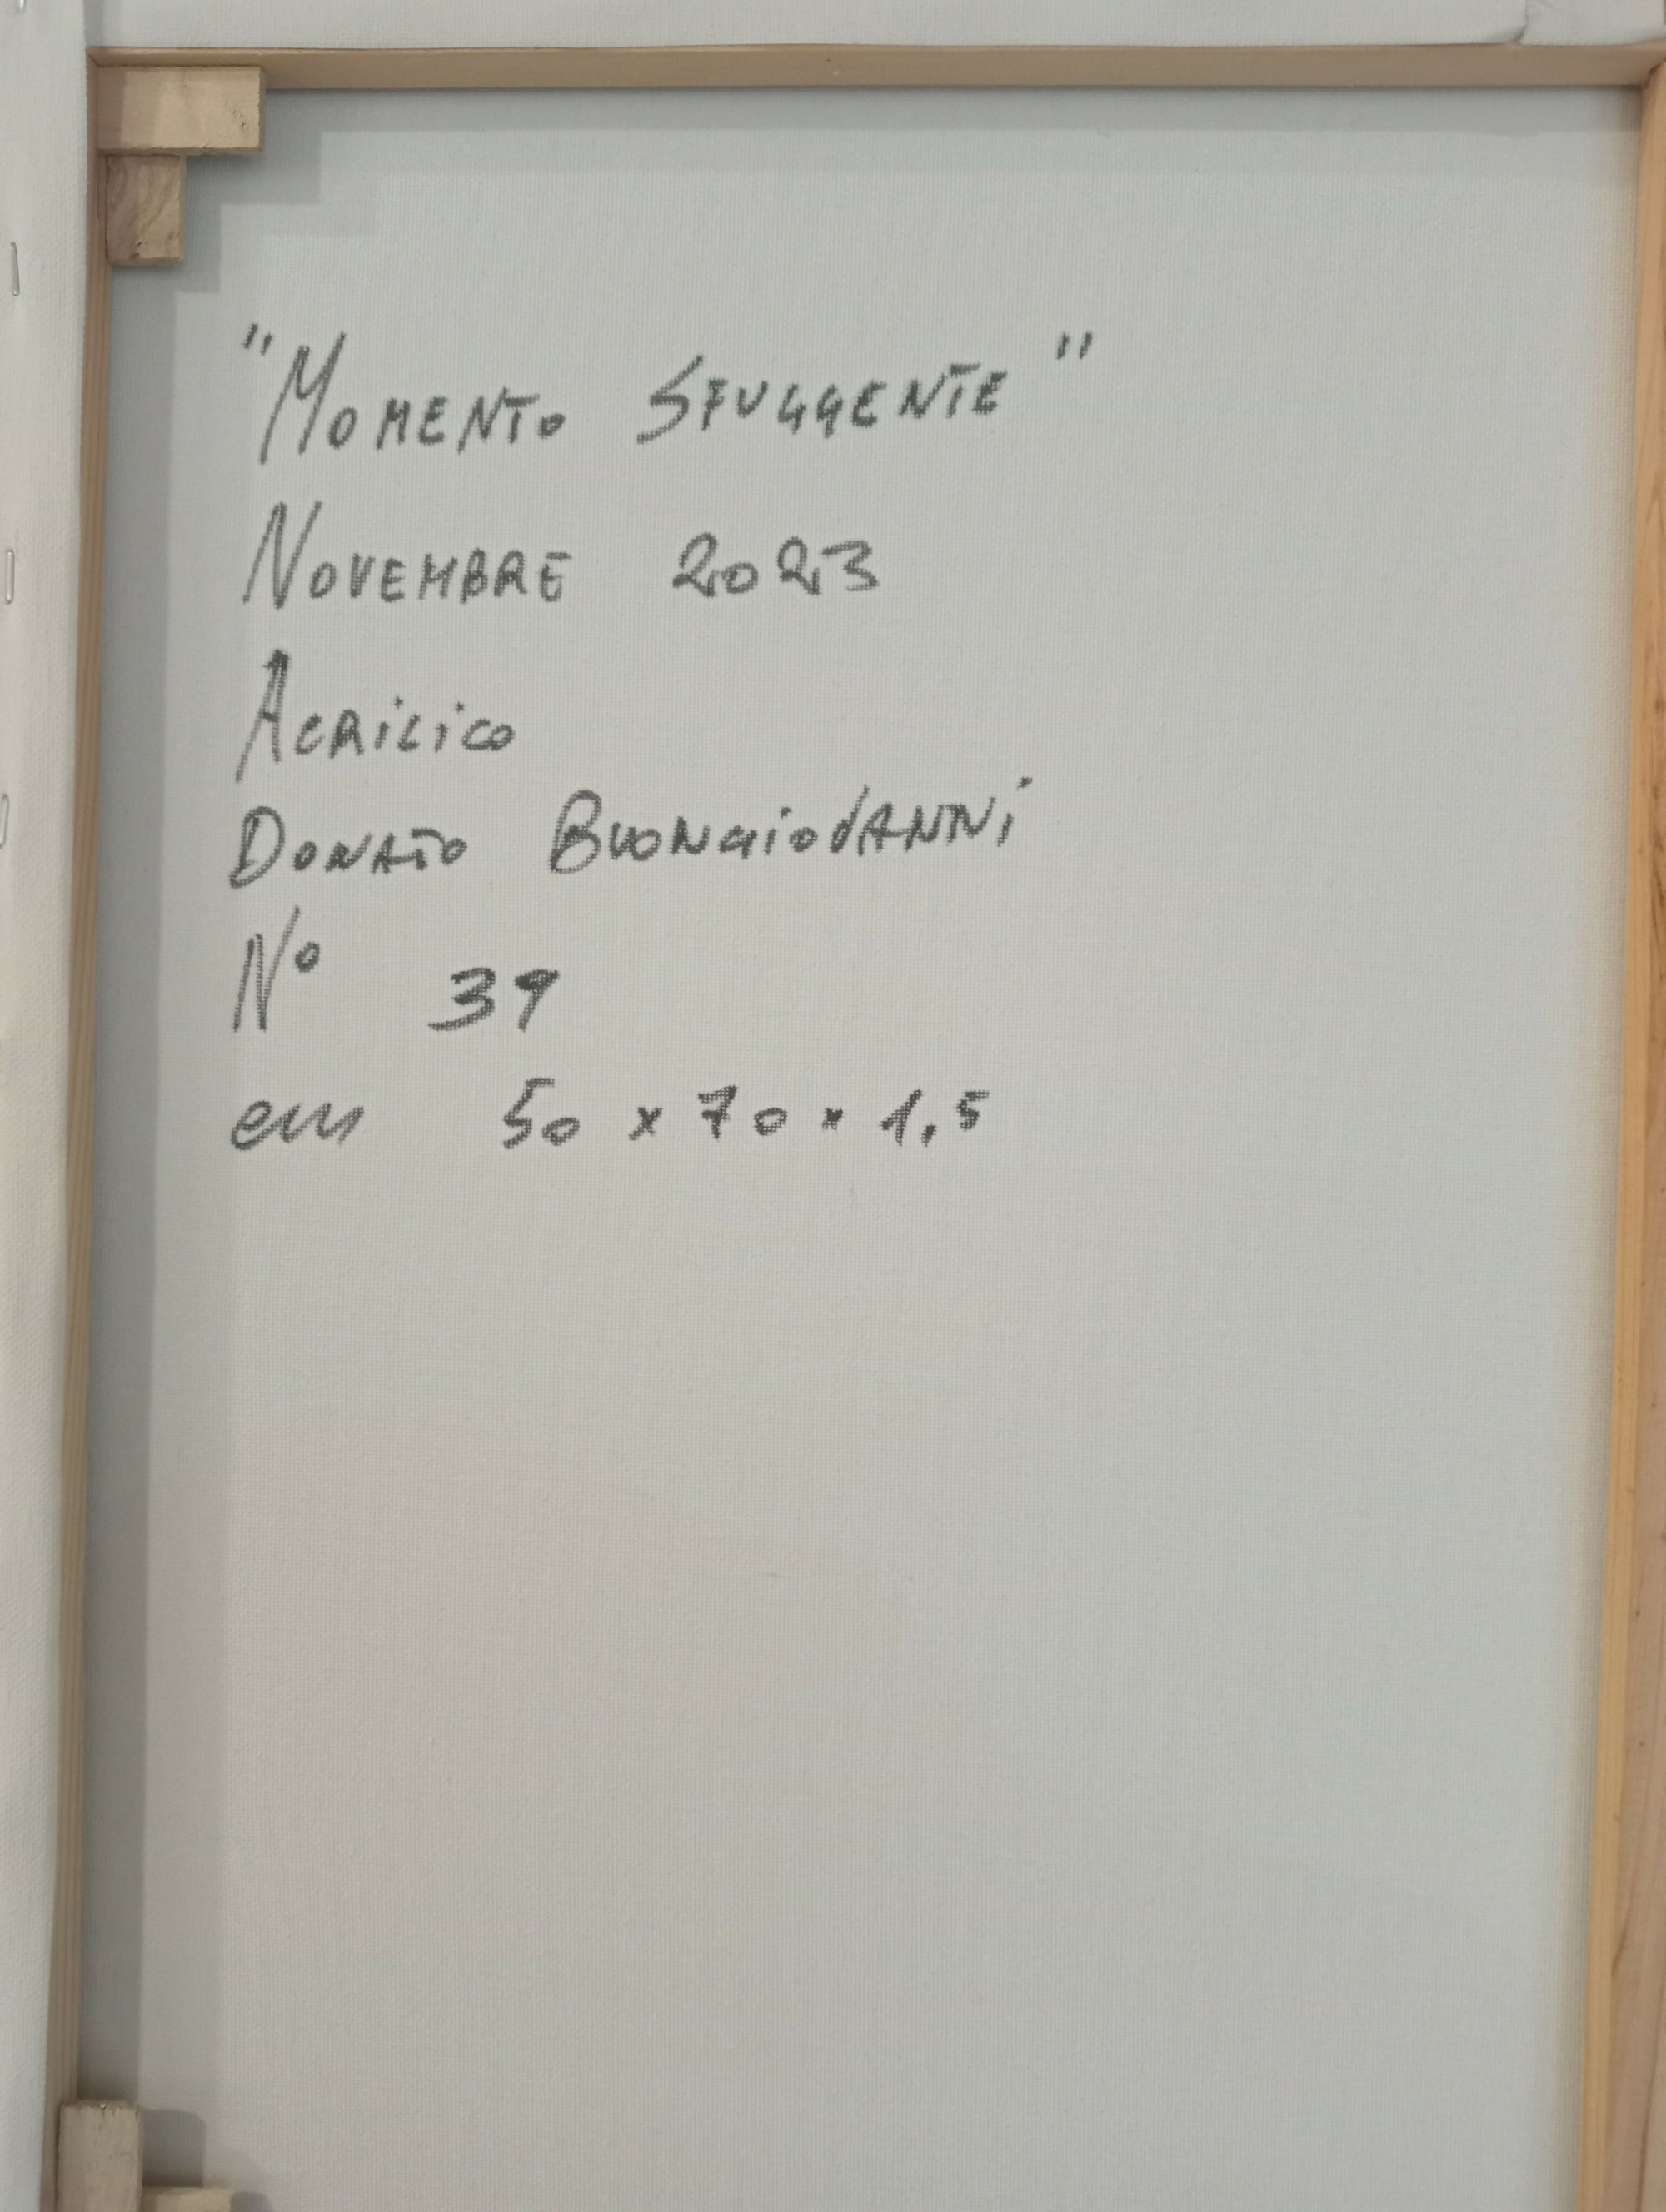 "MOMENTO SFUGGENTE"
NOVEMBRE 2023
ACRILICO
DONATO BUONGIOVANNI
N° 39
cm 50 x 70 x 1,5